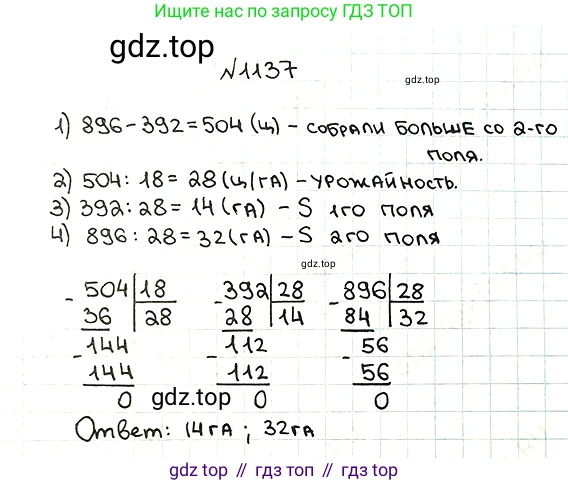 Ищите нас по запросу ГДЗ ТОП
gdz.top
№1137
gdz.top
1) 896-392=504 (ц) - СОБРАЛИ БОЛЬШЕ СО 2-ГО
ПОЛЯ.
2) 504 : 18 = 28 (ц/гА) - УРОЖАЙНОСТЬ.
3) 392 : 28 = 14 (гА) - S 1го ПОЛЯ
4) 896 : 28 = 32 (гА) - S 2го ПОЛЯ
gdz.top
- 504 18 - 392 28 - 896 28
36 28 28 14 84 32
- 144 - 112 - 56
144 112 56
0 gdz.top 0 0
Ответ: 14гА ; 32гА
gdz.top // гдз топ // гдз.топ